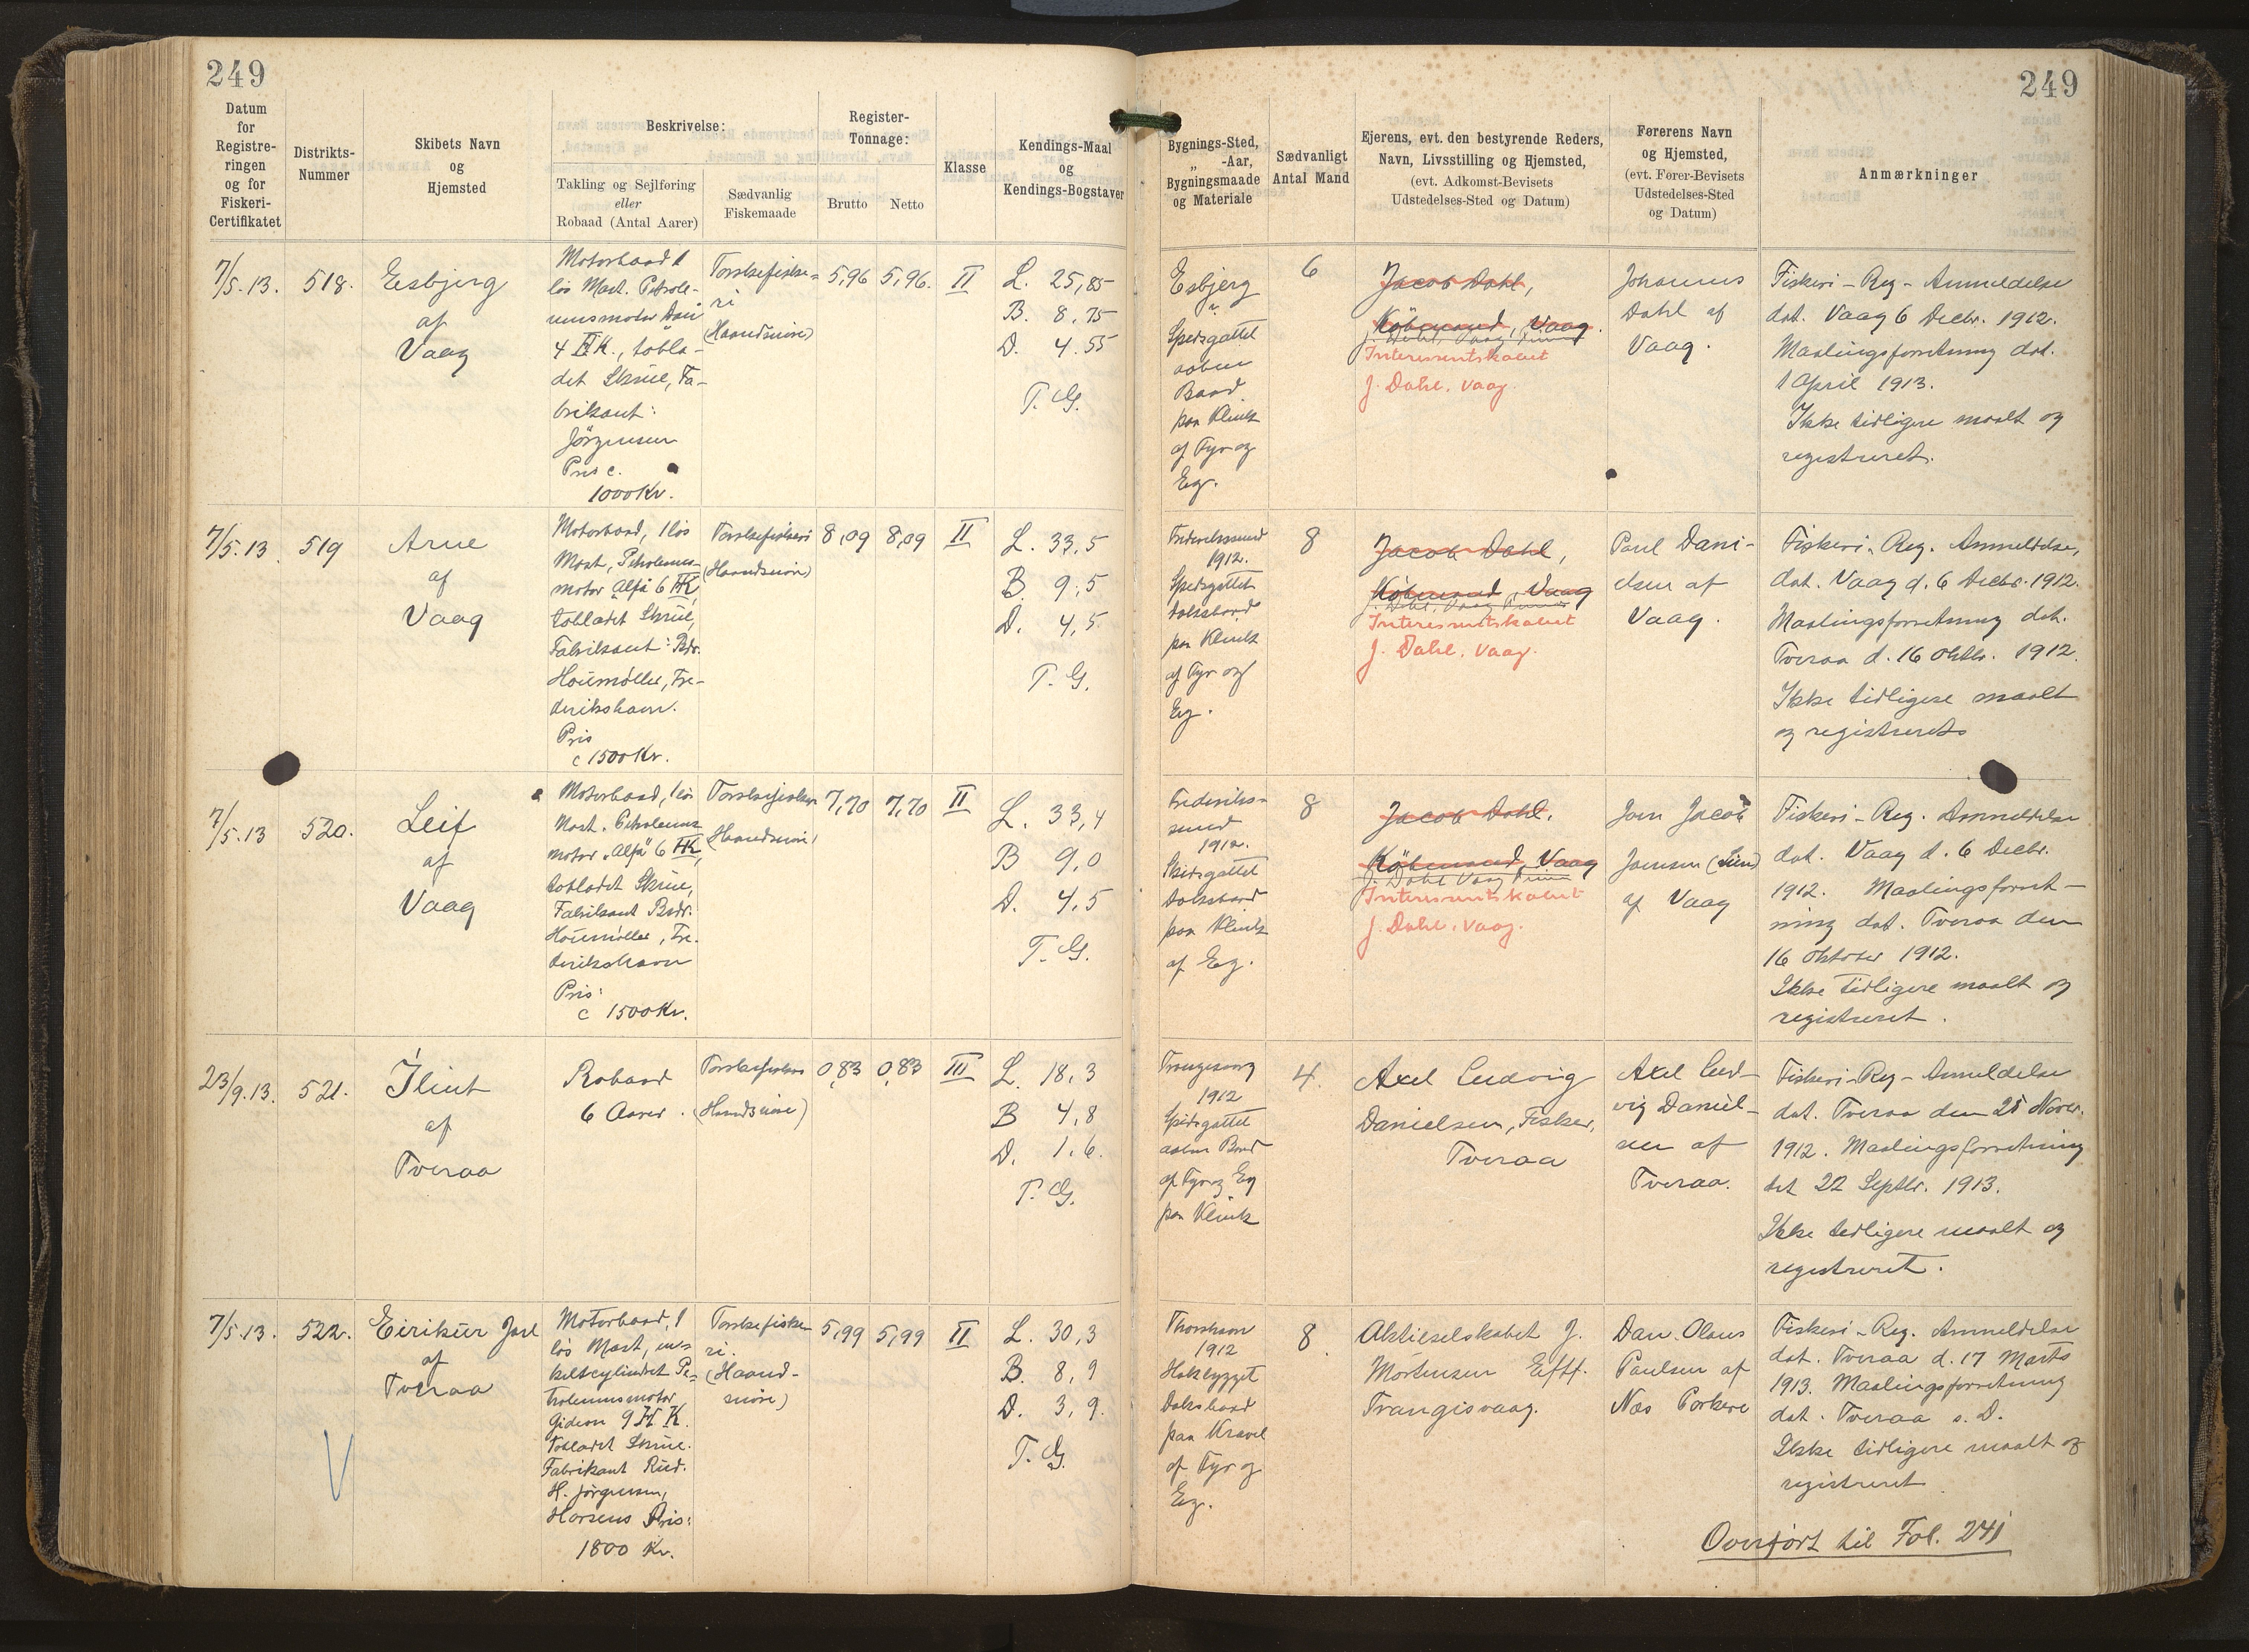 249
249
Datum
for
Registre-
ringen
og for
Fiskeri-
Certifikatet
Distrikts-
Nummer
Skibets Navn
og
Hjemsted
Beskrivelse:
Takling og Sejlføring
eller
Robaad (Antal Aarer)
Sædvanlig
Fiskemaade
Register-
Tonnage:
Brutto
Netto
Klasse
Kendings-Maal
og
Kendings-Bogstaver
Bygnings-Sted,
„ -Aar,
Bygningsmaade
og Materiale
Sædvanligt
Antal Mand
Ejerens, evt. den bestyrende Reders,
Navn, Livsstilling og Hjemsted,
(evt. Adkomst-Bevisets
Udstedelses-Sted og Datum)
Førerens Navn
og Hjemsted,
(evt. Fører-Bevisets
Udstedelses-Sted
og Datum)
Anmærkninger
7/5.13.
518.
Esbjerg
af
Vaag
Motorbaad 1
lös Mast. Petrole-
umsmotor Dan
4 HK., tobla-
det Skrue, Fa-
brikant:
Jörgensen
Pris c.
1000 Kr.
Torskefiske-
ri
(Haandsnöre)
5,96
5,96.
II
L. 25,85
B. 8,75
D. 4.55
T. G.
Esbjerg
Spidsgattet
aaben
Baad
paa Klink
af Fyr og
Eg.
6
Jacob Dahl,
Köbmand, Vaag.
Interessentskabet
J. Dahl. Vaag.
Johannes
Dahl af
Vaag.
Fiskeri-Reg-Anmeldelse
dat. Vaag 6 Decbr. 1912.
Maalingsforretning dat.
1 April 1913.
Ikke tidligere maalt og
registreret.
7/5.13
519
Arne
af
Vaag
Motorbaad, 1 lös
Mast, Petroleums-
motor Alfa 6 HK,
tobladet Skrue,
Fabrikant: Bdr.
Houmøller, Fre-
derikshavn.
Pris
c 1500 Kr.
Torskefiskeri
(Haandsnöre)
8,09
8,09
II
L. 33,5
B. 9,5
D. 4,5
T. G.
Frederikssund
1912.
Spidsgattet
Dæksbaad
paa Klink
af Fyr og
Eg.
8
Jacob Dahl,
Köbmand, Vaag
Interessentskabet
J. Dahl. Vaag.
Paul Dani-
elsen af
Vaag.
Fiskeri-Reg. Anmeldelse,
dat. Vaag d. 6 Decbr. 1912.
Maalingsforretning dat.
Tveraa d. 16 Oktbr. 1912.
Ikke tidligere maalt
og registreret
7/5.13
520.
Leif
af
Vaag
Motorbaad, 1 lös
Mast. Petroleums
motor „Alfa" 6 HK,
tobladet Skrue,
Fabrikant Brdr.
Houmøller, Fre-
derikshavn
Pris:
c 1500 Kr.
Torskefiskeri
(Haandsnöre)
7,70
7,70
II
L. 33,4
B 9,0
D. 4,5
T. G.
Frederiks-
sund
1912.
Spidsgattet
Dæksbaad
paa Klink
af Eg.
8
Jacob Dahl,
Köbmand, Vaag
Interessentskabet
J. Dahl. Vaag.
Joen Jacob
Joensen
af Vaag
Fiskeri-Reg. Anmeldelse
dat. Vaag d. 6 Decbr.
1912. Maalingsforret-
ning dat. Tveraa den
16 Oktober 1912.
Ikke tidligere maalt og
registreret.
23/9.13.
521.
af
Tveraa
Robaad
6 Aarer.
Torskefiskeri
(Haandsnöre)
0,83
0,83
III
L. 18,3
B 4,8
D. 1,6.
T. G.
Trangisvaag
1912
Spidsgattet
aaben Baad
af Fyr og Eg
paa Klink
4.
Axel Ludvig
Danielsen, Fisker,
Tveraa
Axel Lud-
vig Daniel-
sen af
Tveraa.
Fiskeri-Reg-Anmeldelse
dat. Tveraa den 25 Novbr.
1912. Maalingsforretning
dat 22 Septbr. 1913.
Ikke tidligere maalt og
registreret.
7/5.13.
522.
Eirikur Jarl
af
Tveraa
Motorbaad, 1
lös Mast, en-
keltcylindret Pe-
troleumsmotor
Gideon 9 H K.
Tobladet Skrue.
Fabrikant Rud.
H. Jörgensen,
Horsens Pris:
1800 Kr.
Torskefiske
ri.
(Haand-
snöre)
5,99
5,99
II
L. 30,3
B. 8,9
D. 3,9.
T. G.
Thorshavn
1912
Hækbygget
Dæksbaad
paa Kravel
af Fyr og
Eg.
8.
Aktieselskabet J.
Mortensen Eftf.
Trangisvaag.
Dan. Olaus
Poulsen af
Næs Porkere
Fiskeri-Reg. Anmeldelse
dat. Tveraa d. 17 Marts
1913. Maalingsforretning
dat. Tveraa s. D.
Ikke tidligere maalt og
registreret
Overfört til Fol. 241